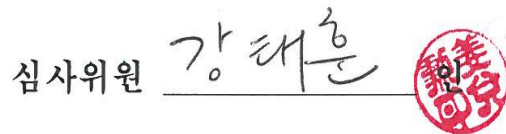 심사위원 강태훈 인